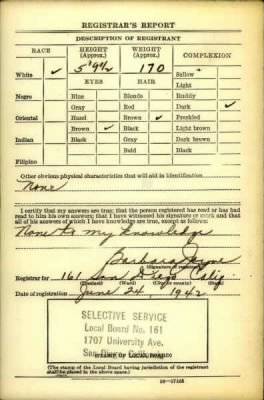 REGISTRAR'S REPORT
DESCRIPTION OF REGISTRANT
RACE HEIGHT (Approx.) WEIGHT (Approx.) COMPLEXION
White ✓ 5' 9½ 170 Sallow
Light
EYES HAIR
Negro Blue Blonde Ruddy
Gray Red Dark ✓
Oriental Hazel Brown ✓ Freckled
Brown ✓ Black Light brown
Indian Black Gray Dark brown
Bald Black
Filipino
Other obvious physical characteristics that will aid in identification
None
I certify that my answers are true; that the person registered has read or has had
read to him his own answers; that I have witnessed his signature or mark and that
all of his answers of which I have knowledge are true, except as follows:
None to my knowledge
Barbara
(Signature of registrar)
Registrar for 161 San Diego Calif.
(Precinct) (Ward) (City or county) (State)
Date of registration June 24, 1942
SELECTIVE SERVICE
Local Board No. 161
1707 University Ave.
San Diego, California
(STAMP OF LOCAL BOARD)
(The stamp of the Local Board having jurisdiction of the registrant
shall be placed in the above space.)